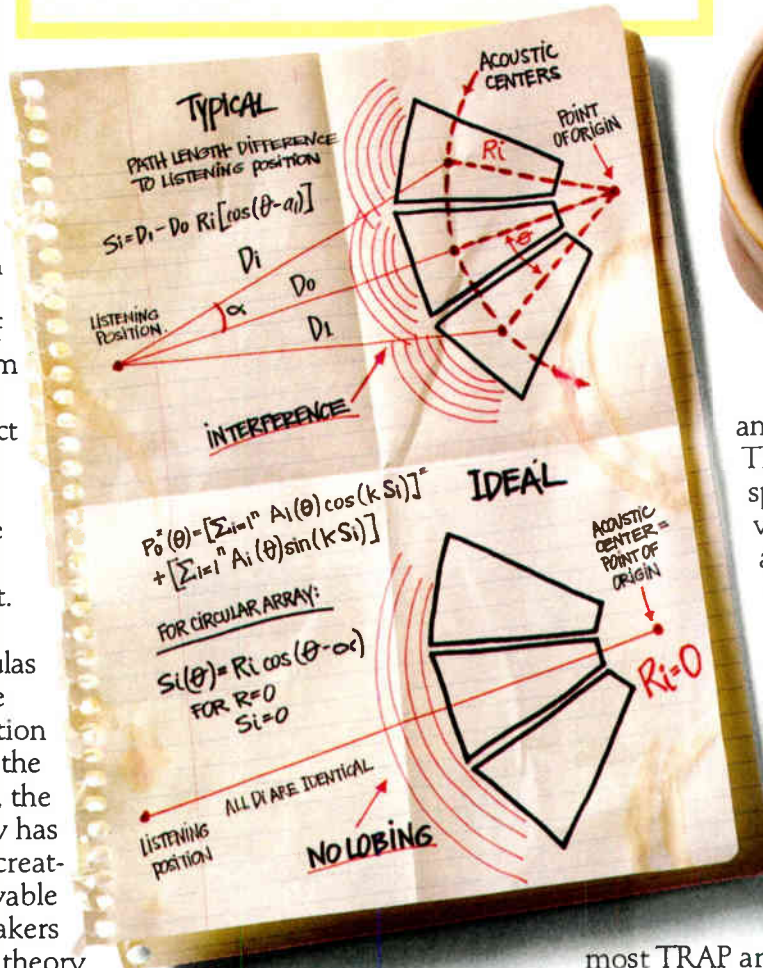 TYPICAL
PATH LENGTH DIFFERENCE
TO LISTENING POSITION
Si=D1-Do Ri[cos(θ-a1)]
Di
Do
D1
α
LISTENING
POSITION.
INTERFERENCE
ACOUSTIC
CENTERS
POINT
OF ORIGIN
Ri
θ
IDEAL
Po²(θ)=[∑i=1ⁿ A1(θ)cos(kSi)]²
+[∑i=1ⁿ Ai(θ)sin(kSi)]
FOR CIRCULAR ARRAY:
Si(θ)=Ri cos(θ-α)
FOR R=0
Si=0
ACOUSTIC
CENTER=
POINT OF
ORIGIN
Ri=0
ALL Di ARE IDENTICAL
LISTENING
POSITION
NO LOBING
m
ct
e
t.
ulas
e
tion
the
, the
y has
creat-
vable
akers
theory
an
sp
v
a
most TRAP ar